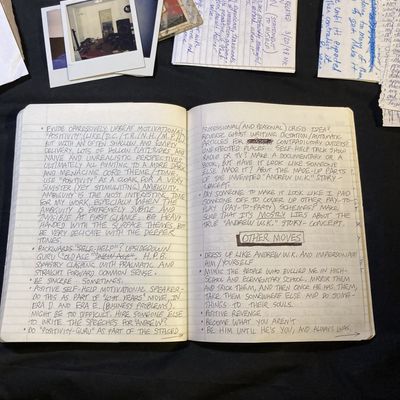 • EVOKE OPPRESSIVELY UPBEAT MOTIVATIONAL
"POSITIVITY" (LIKE /D.C./T.R./N.H./M.P./)
BUT WITH AN OFTEN SHALLOW, AND SIMPLE
DELIVERY, LOTS OF HOLLOW PLATITUDES, AND
NAIVE AND UNREALISTIC PERSPECTIVES,
ULTIMATELY ALL POINTING TO A MORE DARK
AND MENACING CORE THEME/TONE.
USE "POSITIVITY" AS A COVER FOR A VERY
SINISTER (YET STIMULATING) AMBIGUITY.
AMBIGUITY IS THE MOST IMPORTANT THING FOR
MY WORK, ESPECIALLY WHEN THE
AMBIGUITY IS EXTREMELY SUBTLE AND
INVISIBLE AT FIRST GLANCE. BE HEAVY
HANDED WITH THE SURFACE THEMES, BUT
BE VERY DELICATE WITH THE DEEPER
TONES.
• BACKWARDS "SELF-HELP"? UPSIDEDOWN
GURU
H.P.B.
STRAIGHT FORWARD COMMON SENSE.
• BE SINCERE SOMETIMES.
• POSITIVE SELF-HELP MOTIVATIONAL SPEAKER-
DO THIS AS PART OF "LOST YEARS" MOVE, IN
ERA D AND ERA E. (BUSINESS PROBLEMS)
MIGHT BE TOO DIFFICULT. HIRE SOMEONE ELSE
TO WRITE THE SPEECHES FOR ANDREW?
• DO "POSITIVITY-GURU" AS PART OF THE STAGED
PROFESSIONAL/AND PERSONAL/CRISIS IDEA?
REVERSE GHOST WRITING DICTATION/AUTOMATIC
ARTICLES FOR CONTRADICTORY OUTLETS?
UNEXPECTED PLACES - SELF-HELP TALK SHOW
RADIO OR TV? MAKE A DOCUMENTARY OR A
BOOK, BUT HAVE IT LOOK LIKE SOMEONE
ELSE MADE IT? ABOUT THE MADE-UP PARTS
OF THE INVENTED "ANDREW W.K." STORY-
CONCEPT.
• PAY SOMEONE TO MAKE IT LOOK LIKE I PAID
SOMEONE OFF TO COVER UP OTHER PAY-TO-
PLAY (PAY-TO-PARTY) SCHEMES? MAKE
SURE THAT IT'S MOSTLY LIES ABOUT THE
TRUE "ANDREW W.K." STORY-CONCEPT.
OTHER MOVES
• DRESS UP LIKE ANDREW W.K. AND IMPERSONATE
HIM/YOURSELF
• MIMIC THE PEOPLE WHO BULLIED ME IN HIGH-
SCHOOL AND ELEMENTARY SCHOOL. MIRROR THEM
AND TRICK THEM, AND THEN ONCE HE HAS THEM,
TAKE THEM SOMEWHERE ELSE AND DO SOME-
THINGS TO THEIR SOULS.
• POSITIVE REVENGE
• BECOME WHAT YOU AREN'T
• BE HIM UNTIL HE'S YOU, AND ALWAYS WAS.